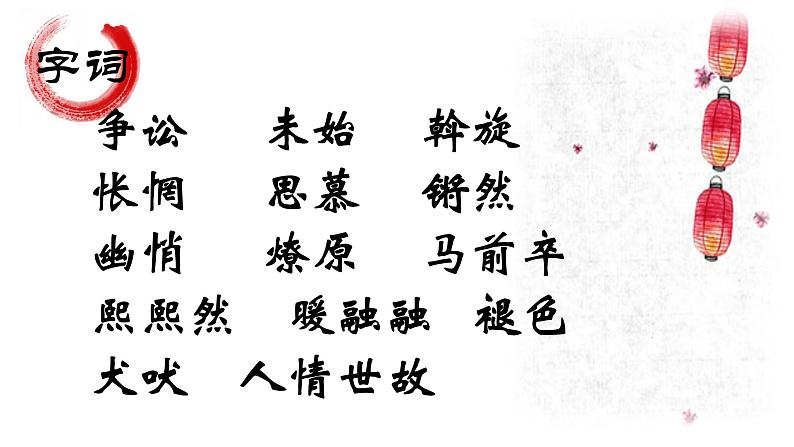 字词
争讼 未始 斡旋
怅惘 思慕 锵然
幽悄 燎原 马前卒
熙熙然 暖融融 褪色
犬吠 人情世故